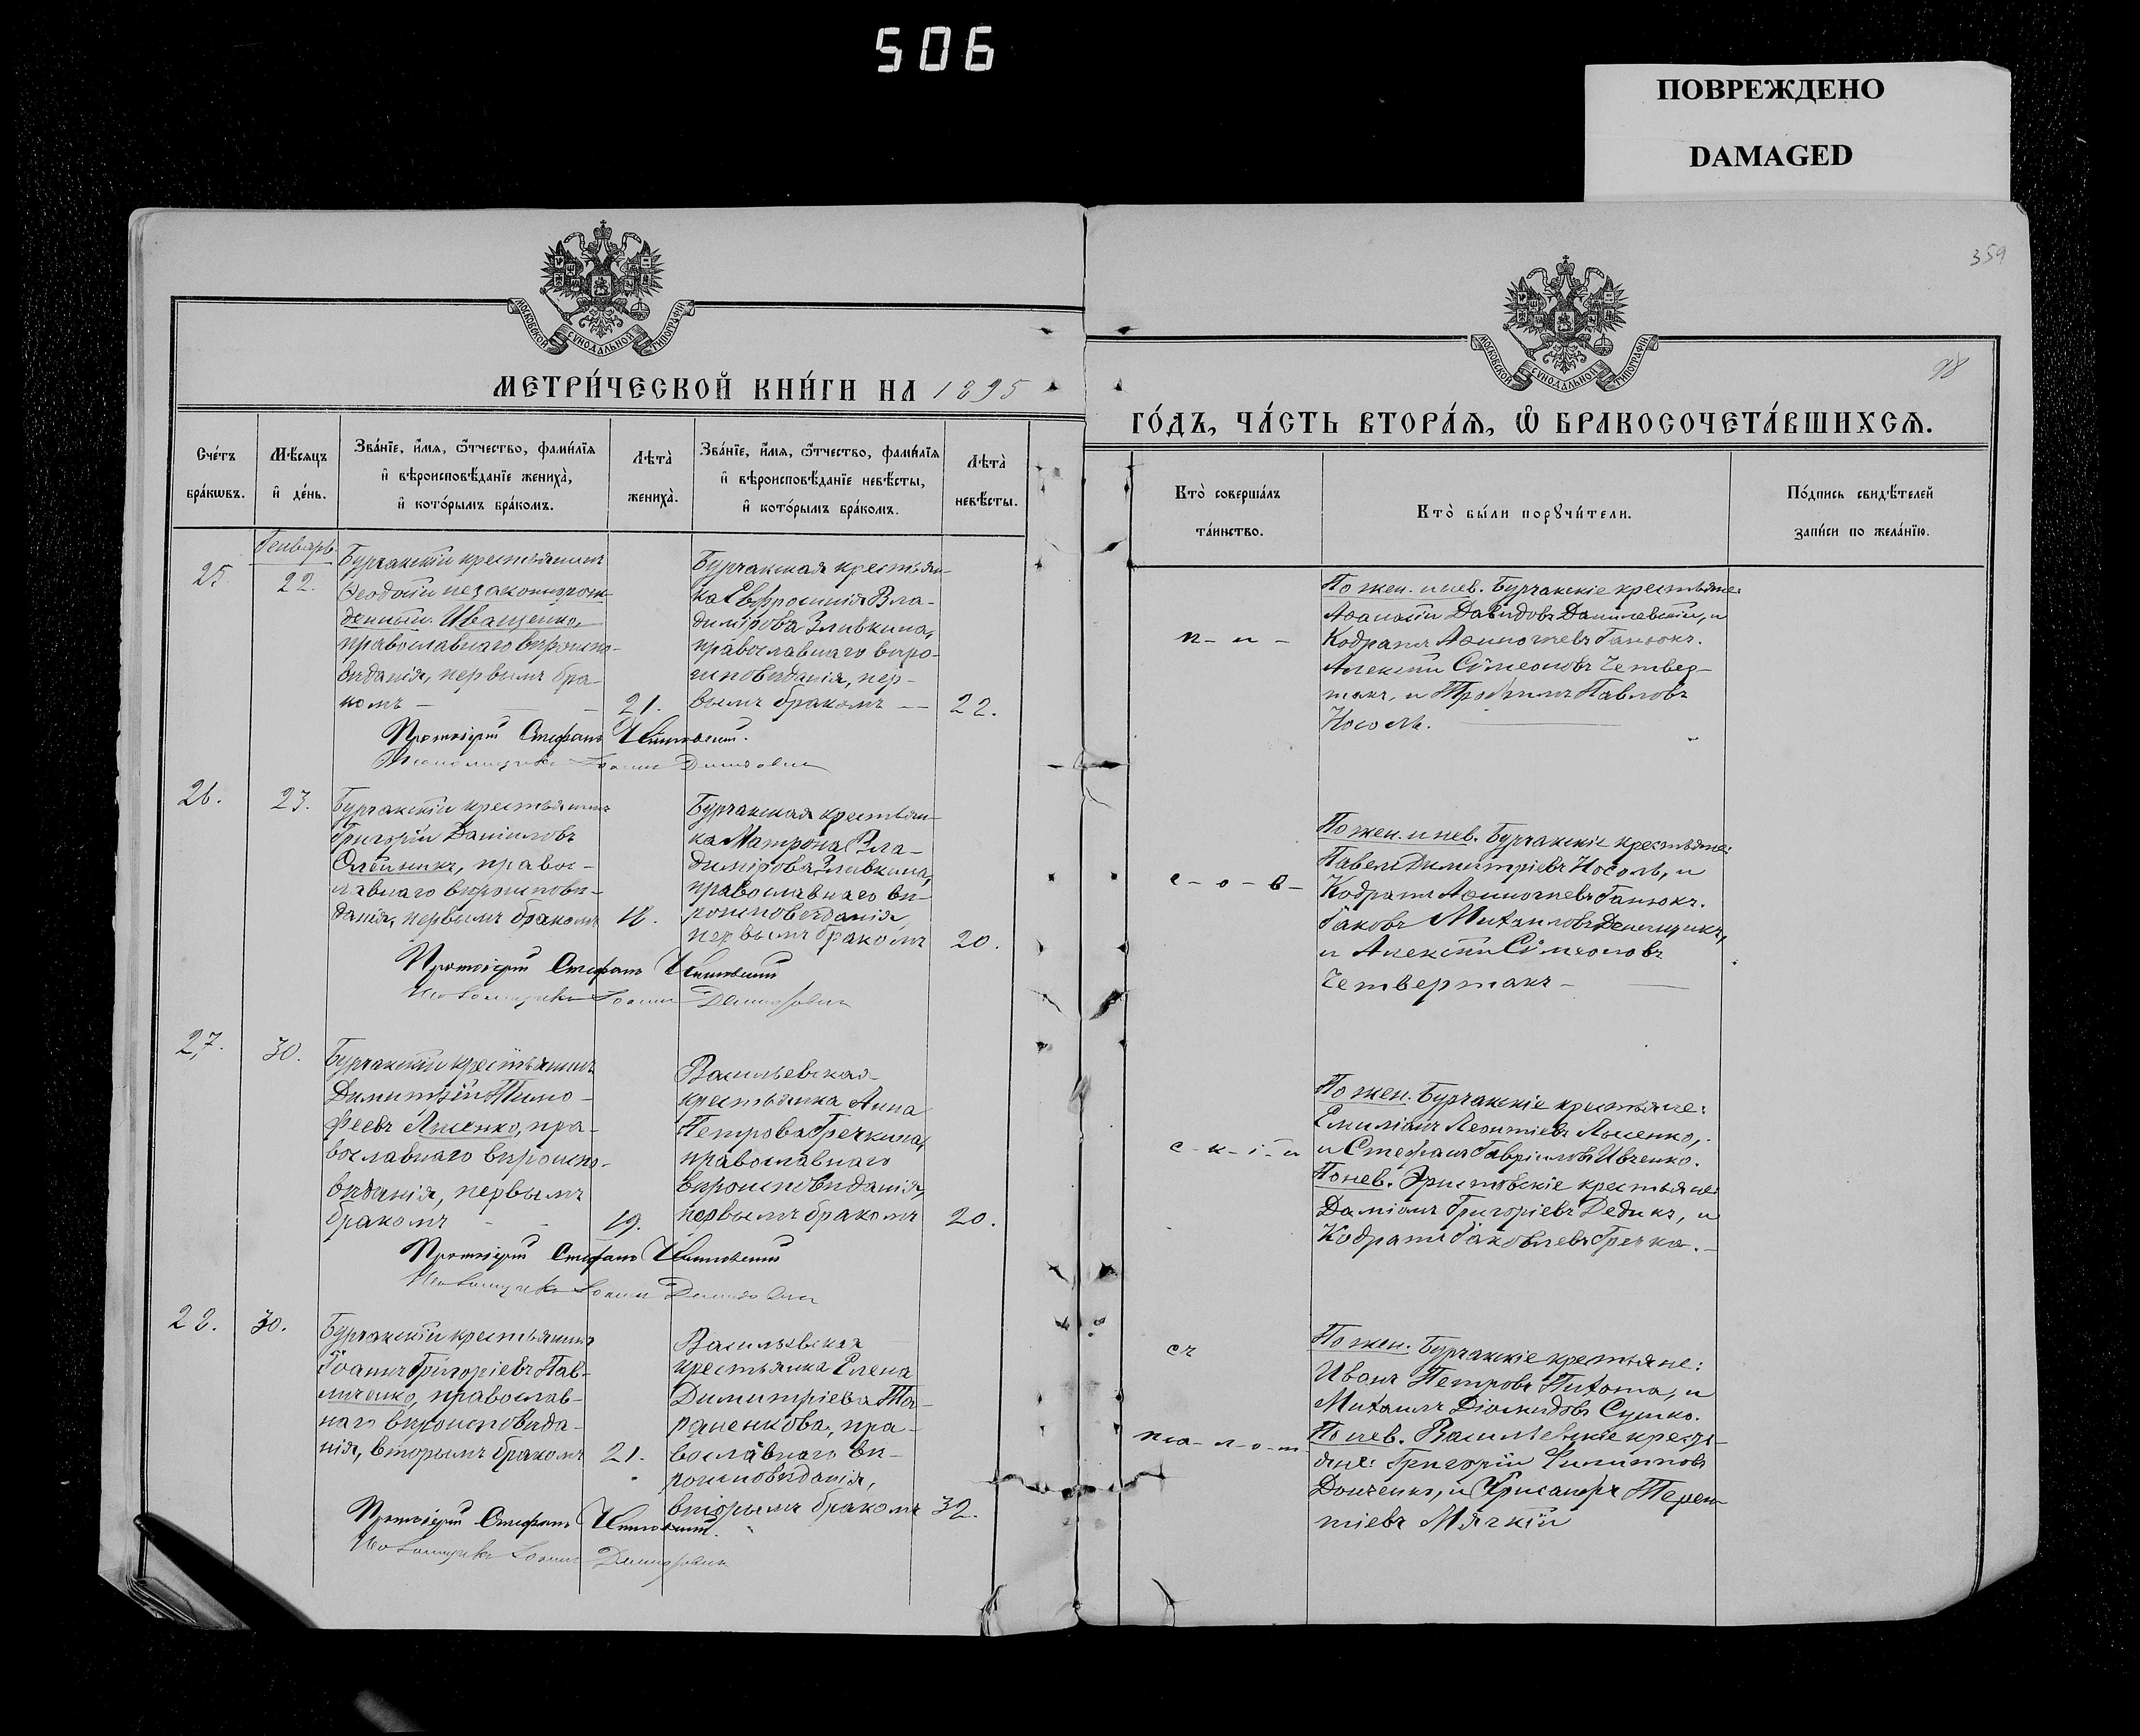 506
ПОВРЕЖДЕНО
DAMAGED
359
98
МОСКОВСКОЙ СѴНОДАЛЬНОЙ ТИПОГРАФІИ
МОСКОВСКОЙ СѴНОДАЛЬНОЙ ТИПОГРАФІИ
МЕТРИ́ЧЕСКОЙ КНИ́ГИ НА 1895
ГО́ДЪ, ЧА́СТЬ ВТОРА́Ѧ, Ѽ БРАКОСОЧЕТА́ВШИХСѦ.
Сче́тъ
бра́кѡвъ.
Мѣ́сяцъ
и҆ де́нь.
Зва́нїе, и҆́мѧ, ѻ҆́тчество, фами́лїѧ
и҆ вѣроисповѣ́данїе жениха̀,
и҆ кото́рымъ бра́комъ.
Лѣта̀
жениха̀.
Зва́нїе, и҆́мѧ, ѻ҆́тчество, фами́лїѧ
и҆ вѣроисповѣ́данїе невѣ́сты,
и҆ кото́рымъ бра́комъ.
Лѣта̀
невѣ́сты.
Кто̀ соверша́лъ
та́инство.
Кто̀ бы́ли порꙋчи́тели.
По́дпись свидѣ́телей
за́писи по жела́нїю.
Генварь
25.
22.
Бурчакскій крестьянинъ
Ѳеодосій незаконнорож-
денный Иващенко,
православнаго вѣроиспо-
вѣданія, первымъ бра-
комъ —
21.
Бурчакская крестьян-
ка Евфросинія Вла-
димірова Зливкина,
православнаго вѣро-
исповѣданія, пер-
вымъ бракомъ —
22.
Протоіерей Стефанъ
Псаломщикъ Іоаннъ
п - и -
По жен. и нев. Бурчакскіе крестьяне:
Аѳанасій Давидовъ Данилевскій, и
Кодратъ Аѳиногеевъ Ганюкъ.
Алексій Сѵмеоновъ Четвер-
такъ, и Трофимъ Павловъ
Носоль.
26.
23.
Бурчакскій крестьянинъ
Григорій Даніиловъ
Олейникъ, правос-
лавнаго вѣроисповѣ-
данія, первымъ бракомъ
18.
Бурчакская крестьян-
ка Матрона Вла-
димірова Зливкина,
православнаго вѣ-
роисповѣданія,
первымъ бракомъ
20.
Протоіерей Стефанъ
Псаломщикъ Іоаннъ
с - о - в -
По жен. и нев. Бурчакскіе крестьяне:
Павелъ Димитріевъ Носоль, и
Кодратъ Аѳиногеевъ Ганюкъ.
Іаковъ Михаиловъ Денщикъ,
и Алексій Сѵмеоновъ
Четвертакъ —
27.
30.
Бурчакскій крестьянинъ
Димитрій Тимо-
феевъ Лысенко, пра-
вославнаго вѣроиспо-
вѣданія, первымъ
бракомъ - -
19.
Васильевская
крестьянка Анна
Петрова Гречкина,
православнаго
вѣроисповѣданія,
первымъ бракомъ
20.
Протоіерей Стефанъ
Псаломщикъ Іоаннъ
с - к - і - й
По жен. Бурчакскіе крестьяне:
Емиліанъ Леонтіевъ Лысенко,
и Стефанъ Гавріиловъ Ивченко.
По нев. Эристовскіе крестьяне:
Даміанъ Григоріевъ Дедикъ, и
Кодратъ Іаковлевъ Гречка. —
28.
30.
Бурчакскій крестьянинъ
Іоаннъ Григоріевъ Пав-
личенко, православ-
наго вѣроисповѣда-
нія, вторымъ бракомъ
21.
Васильевская
крестьянка Елена
Димитріева Та-
раненкова, пра-
вославнаго вѣ-
роисповѣданія,
вторымъ бракомъ
32.
Протоіерей Стефанъ
Псаломщикъ Іоаннъ
съ
По жен. Бурчакскіе крестьяне:
Иванъ Петровъ Пихота, и
Михаилъ Діомидовъ Сушко.
По нев. Васильевскіе кресть-
яне: Григорій Филипповъ
Донченко, и Хрисанфъ Терен-
тіевъ Мягкій